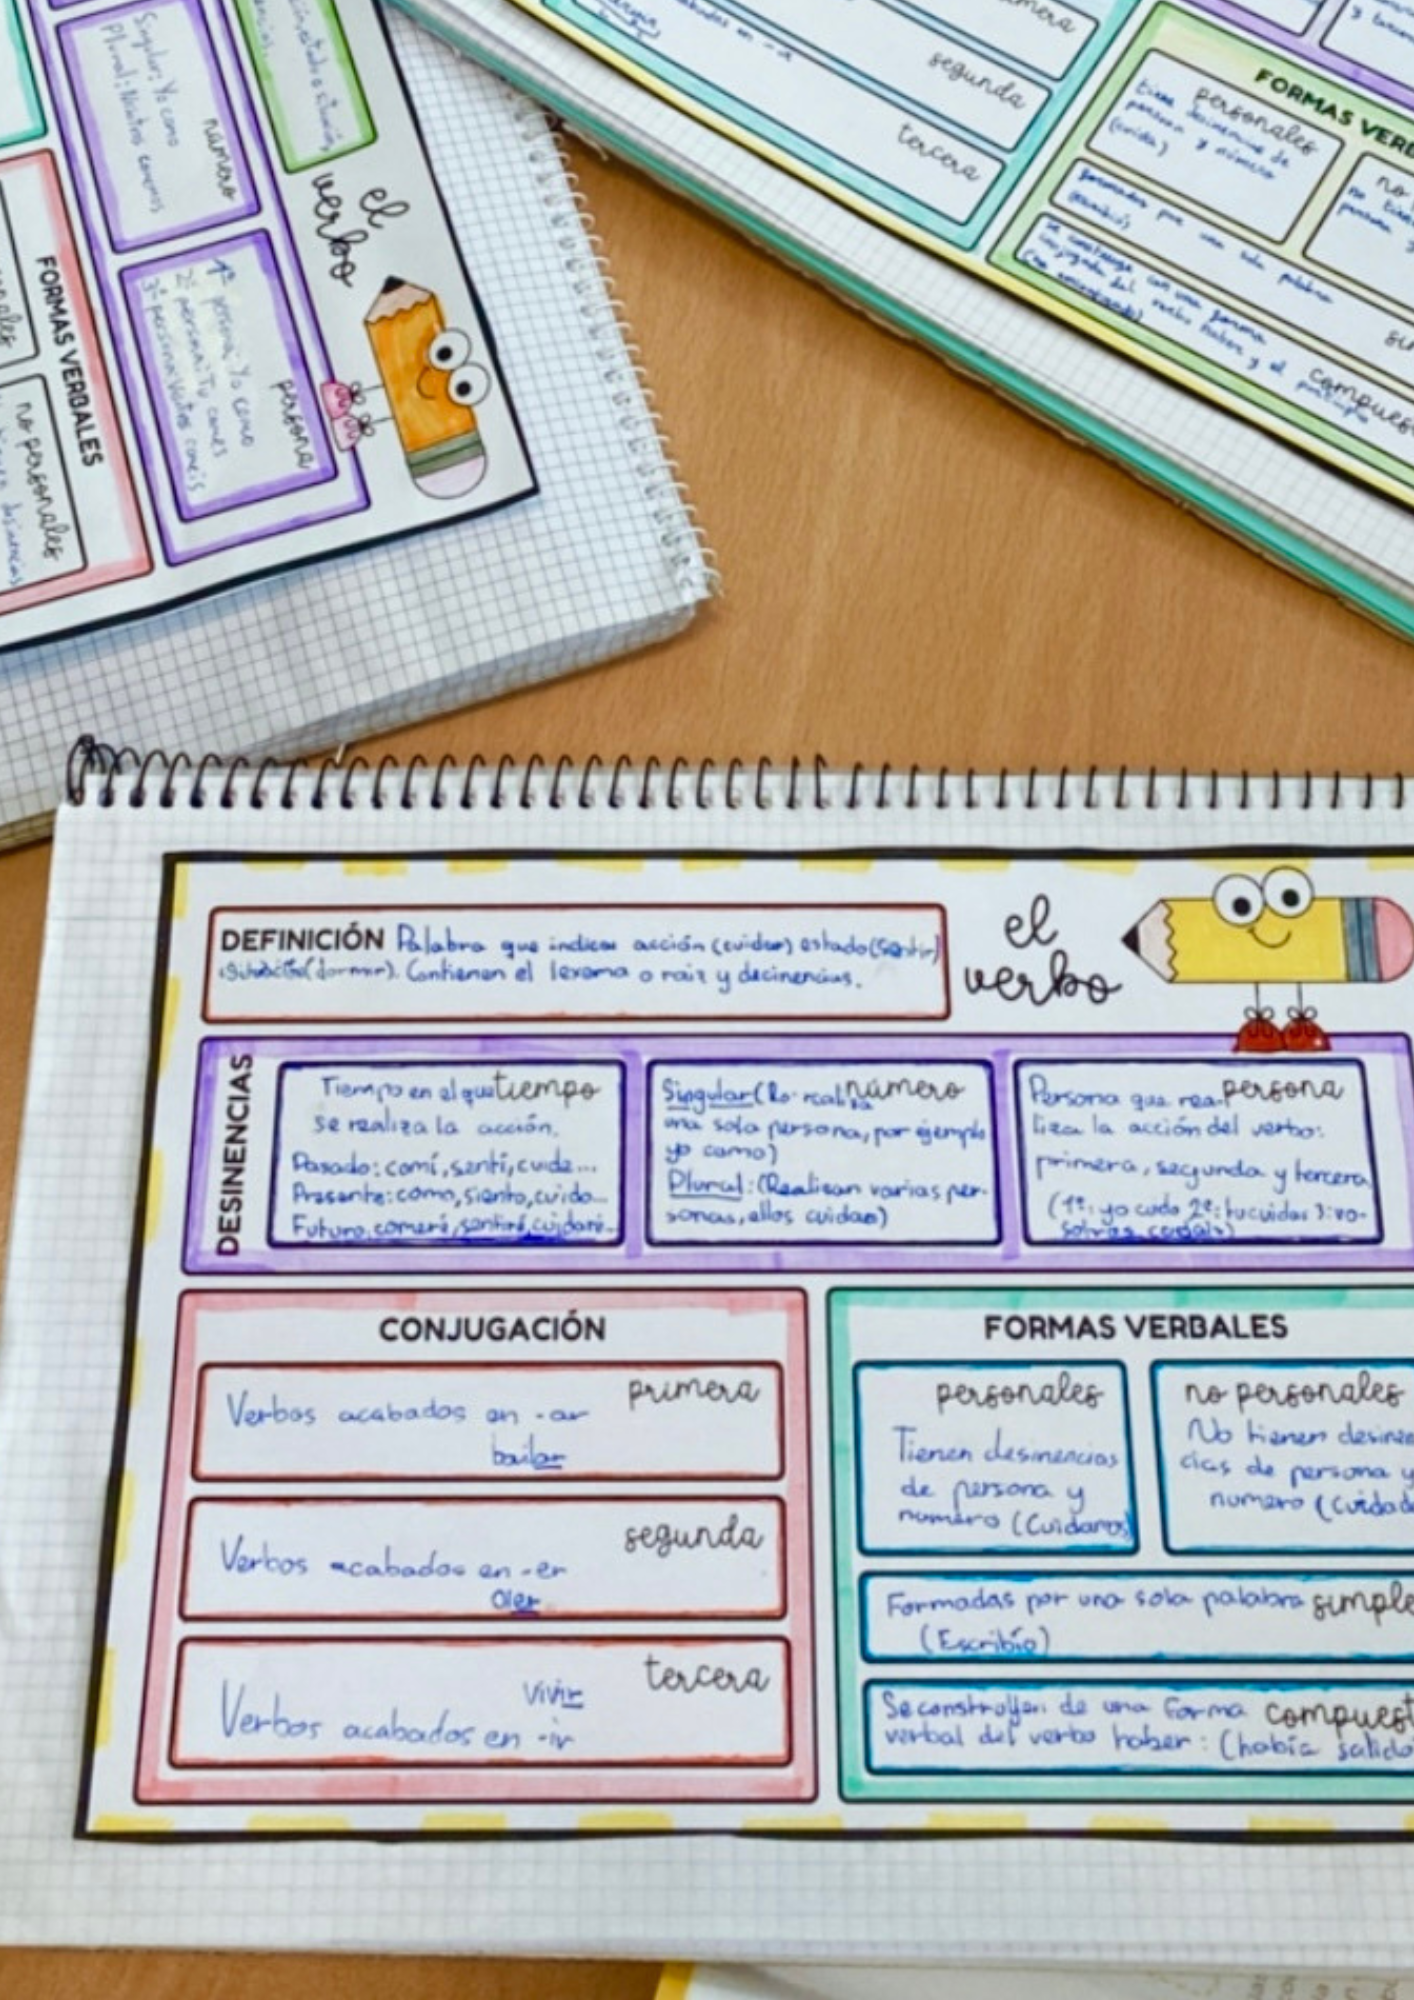 singular: Yo como
plural: Nosotros comemos
número
el
verbo
1ª persona: Yo como
2ª persona: Tu comes
3ª persona: Vosotros comeis
persona
FORMAS VERBALES
no personales
segunda
tercera
FORMAS
personales
tiene desinencias de
persona y número
(cuida)
formadas por una sola palabra
se construye con una forma
conjugada del verbo haber y el participio
DEFINICIÓN Palabra que indica acción (cuidar) estado (sentir)
(dormir). Contienen el lexema o raiz y decinencias.
el
verbo
DESINENCIAS
tiempo
Tiempo en el que
se realiza la acción.
Pasado: comí, sentí, cuide...
Presente: como, siento, cuido...
Futuro, comeré, sentiré, cuidaré...
número
Singular (
una sola persona, por ejemplo
yo como)
Plural: (Realisan varias per-
sonas, ellos cuidan)
persona
Persona que rea-
liza la acción del verbo:
primera, segunda y tercera
(1ª: yo cuido 2ª: tu cuidas 3: vo-
CONJUGACIÓN
primera
Verbos acabados en -ar
bailar
segunda
Verbos acabados en -er
Oler
tercera
Vivir
Verbos acabados en -ir
FORMAS VERBALES
personales
Tienen desinencias
de persona y
numero (Cuidamos)
no personales
No tienen desinen
cias de persona y
numero (Cuidad
Formadas por una sola palabra simple
(Escribío)
Se construllen de una forma compuest
verbal del verbo haber: (había salido